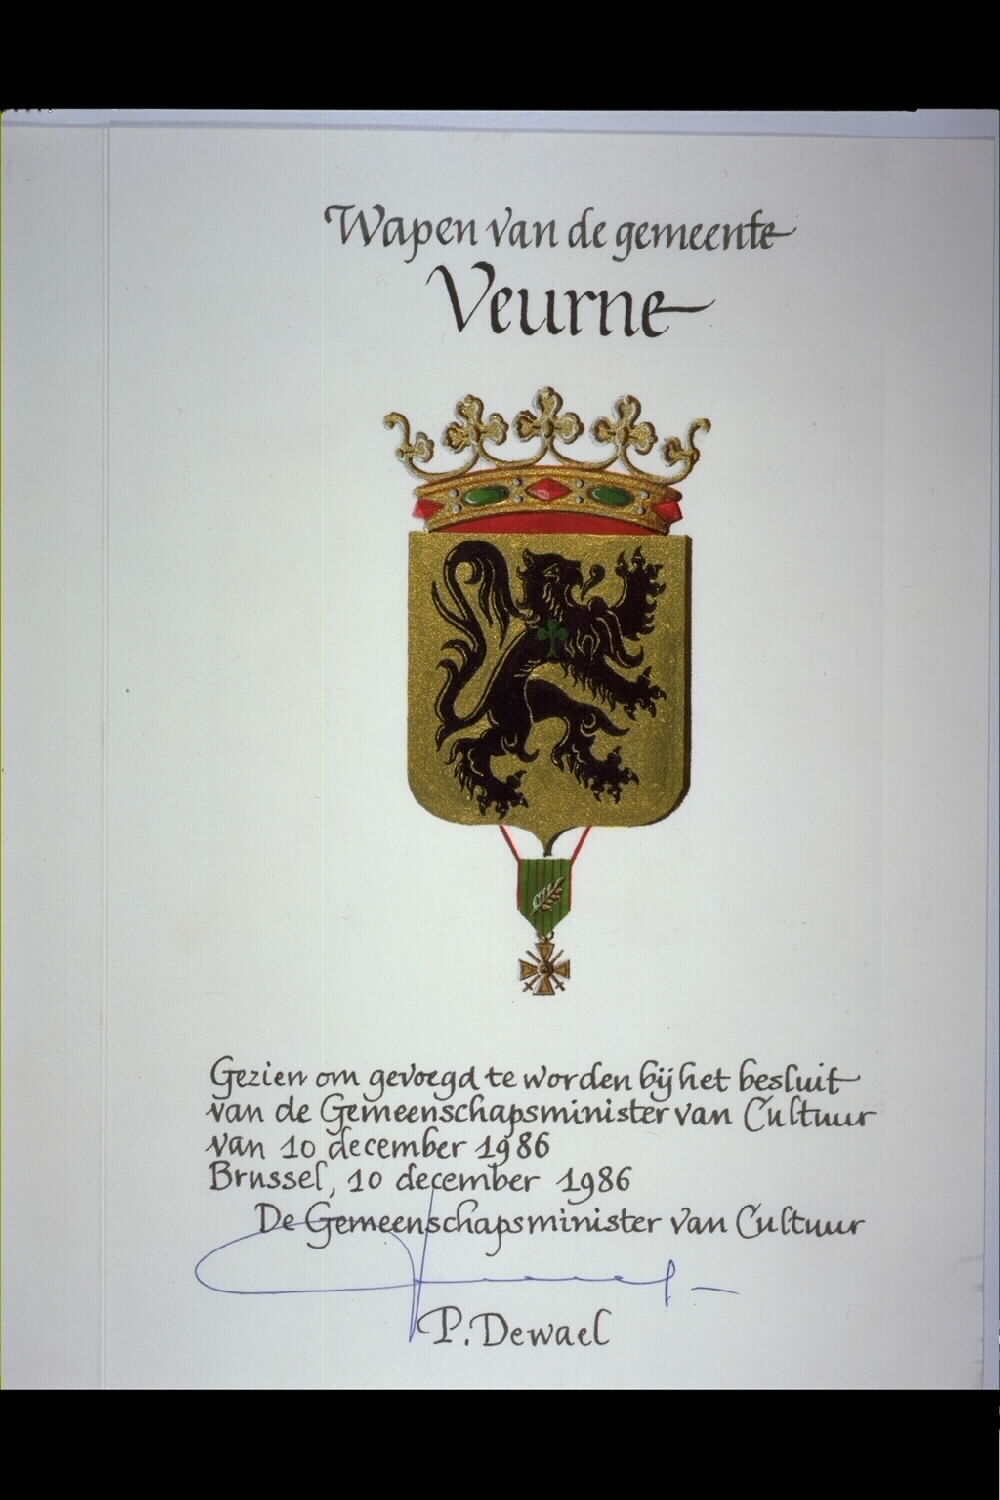 Wapen van de gemeente
Veurne
Gezien om gevoegd te worden bij het besluit
van de Gemeenschapsminister van Cultuur
van 10 december 1986
Brussel, 10 december 1986
De Gemeenschapsminister van Cultuur
P. Dewael